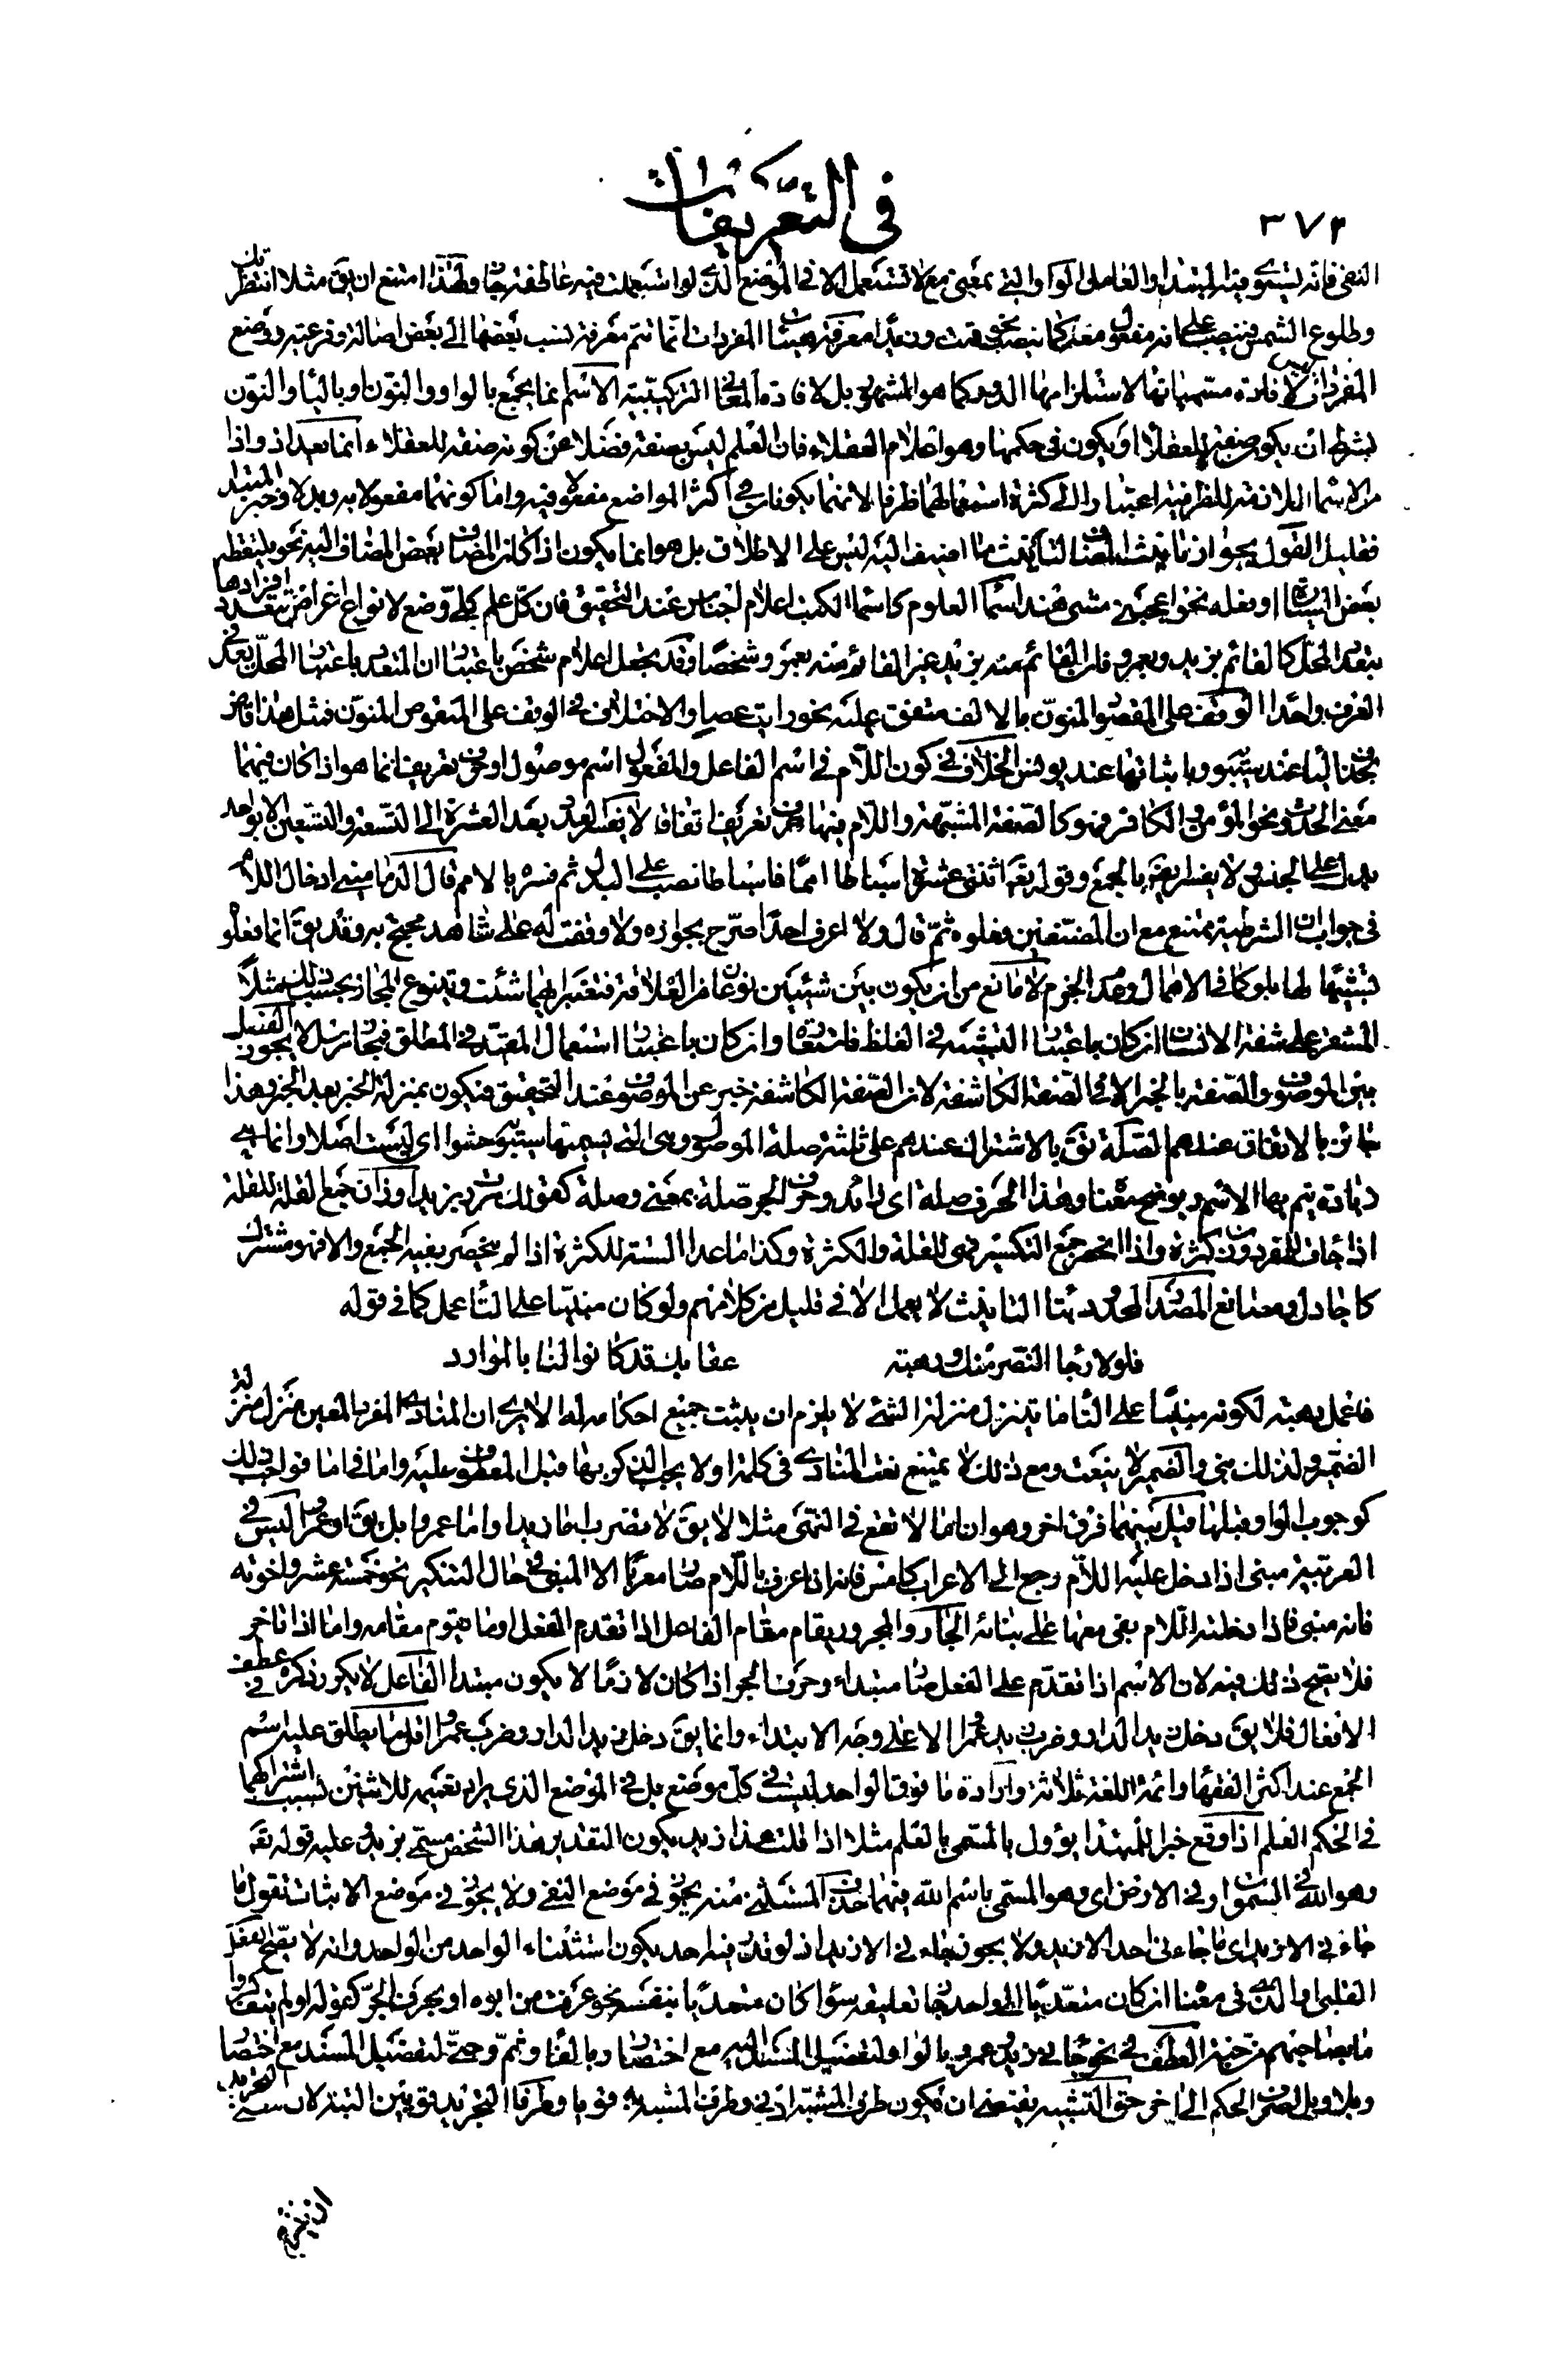 في التعريفات
٣٧٢
النفي فانه يستوي فيه المبتدا والفاعل الواو التي بمعنى مع لا تستعمل الا في الموضع الذي لو استعملت فيه عاطفة جاز ولهذا امتنع ان يق مثلا انتظرتك
وطلوع الشمس فينصب على انه مفعول معه كما ينصب نحو قمت وزيدا معرفة المفردات انما تتم معرفة نسب بعضها الى بعض اصالة وفرعية وضع
المفردات ليس لافادة مسمياتها لاستلزامها الدور كما هو المشهور بل لافادة المعاني التركيبية الاسم انما يجمع بالواو والنون او بالياء والنون
بشرط ان يكون صفة للعقلاء او يكون في حكمها وهو اعلام العقلاء فان العلم ليس بصفة فضلا عن كونه صفة للعقلاء انما يعد اذ واذا
من الاسماء اللازمة للظرفية اعتبارا الى كثرة استعمالهما ظرفا لانهما يكونان في اكثر المواضع مفعولا فيه واما كونهما مفعولا به وبدلا وخبر المبتدا
فقليل القول بجواز تانيث المضاف لتانيث ما اضيف اليه ليس على الاطلاق بل هو انما يكون اذا كان المضاف بعض المضاف اليه نحو يلتقطه
بعض السيارة او فعله نحو اعجبتني مشي هند اسماء العلوم كاسماء الكتب اعلام اجناس عند التحقيق فان كل علم كلي وضع لانواع اعراض تتعدد افرادها
بتعدد المحل كالقائم بزيد وبعمرو فان القائم منه بزيد غير القائم منه بعمرو شخصا وقد يجعل اعلام شخص باعتبار ان المتعدد باعتبار المحل يعد في
العرف واحدا الوقف على المقصور المنون بالالف متفق عليه نحو رايت عصا والاختلاف في الوقف على المنقوص المنون فمثل هذا قاض
بحذف الياء عند سيبويه وباثباتها عند يونس الخلاف في كون اللام في اسم الفاعل والمفعول اسم موصول او حرف تعريف انما هو اذا كان فيهما
معنى الحدوث نحو المؤمن والكافر فهو كالصفة المشبهة واللام فيها حرف تعريف اتفاقا لا يفسر العدد بعد العشرة الى التسعة والتسعين الا بواحد
يدل على الجنس لا يفسر بالجمع وقوله تعم اثنتي عشرة اسباطا امما فاسباطا نصب على البدل ثم فسره بالامم قال الدماميني ادخال اللام
في جواب ان الشرطية ممتنع مع ان المصنفين يفعلونه ثم قال ولا اعرف احدا صرح بجوازه ولا وقفت له على شاهد محتج به وقد يق انما فعلوا
تشبيها لها بلو كما في الاهمال وعدم الجزم لا مانع من ان يكون بين شيئين نوعان من العلاقة فتعتبر ايهما شئت ويتنوع المجاز بحسب ذلك مثلا
المشفر على شفة الانسان ان كان باعتبار التشبيه في الغلظ فاستعارة وان كان باعتبار استعمال المقيد في المطلق فمجاز مرسل لا يجوز الفصل
بين الموصوف والصفة بالخبر الا في الصفة الكاشفة لان الصفة الكاشفة خبر عن الموصوف عند التحقيق فيكون بمنزلة الخبر بعد الخبر وهذا
جائز بالاتفاق عندهم الصلة تق بالاشتراك عندهم على ثلثة صلة الموصول وهي التي يسميها سيبويه حشوا اي ليست اصلا وانما هي
زيادة يتم بها الاسم ويوضح معناه وهذا الحرف صلة اي زائد وحرف الجر صلة بمعنى وصلة كقولك مررت بزيد اوزان جمع القلة للقلة
اذا جاء للمفرد وزن كثرة واذا انحصر جمع التكسير فيها فهي للقلة والكثرة وكذا ما عدا الستة للكثرة اذا لم ينحصر فيه الجمع والا فهو مشترك
كاجادل ومصانع المصدر المحدود بتاء التانيث لا يعمل الا في قليل من كلامهم ولو كان مبنيا على التاء عمل كما في قوله
فلولا رجاء النصر منك ورهبة عقابك قد كانوا لنا بالموارد
فاعمل رهبة لكونه مبنيا على التاء ما تنزل منزلة الشيء لا يلزم ان يثبت جميع احكامه له الا يرى ان المنادى المفرد المعين منزل منزلة
الضمير ولذلك بني والضمير لا ينعت ومع ذلك لا يمتنع نعت المنادى في كلمة او لا يجب الذكر بها قبل المعطوف عليه واما في اما فواجب ذلك
كوجوب الواو قبلها قيل بينهما فرق اخر وهو ان اما لا تقع في النهي مثلا لا يق لا تضرب اما زيدا واما عمروا بل يق او عمروا ليس في
العربية مبني اذا دخل عليه اللام رجع الى الاعراب كامس فانه اذا عرف باللام صار معربا الا المبني في حال التنكير نحو خمسة عشر واخوته
فانه مبني فاذا دخلته اللام بقي معها على بنائه الجار والمجرور يقام مقام الفاعل اذا تقدم الفعل او ما يقوم مقامه واما اذا تاخر
فلا يصح ذلك فيه لان الاسم اذا تقدم على الفعل صار مبتداء وحرف الجر اذا كان لازما لا يكون مبتدا الفاعل لا يكون نكرة في عطف
الافعال فلا يق دخل زيد الدار وضرب زيد عمرا الا على وجه الابتداء وانما يق دخل زيد الدار وضرب عمرا اقل ما يطلق عليه اسم
الجمع عند اكثر الفقهاء وائمة اللغة ثلاثة وارادة ما فوق الواحد ليست في كل موضع بل في الموضع الذي يراد تعميمه للاثنين بسبب اشتراكهما
في الحكم العلم اذا وقع خبرا للمبتدا يؤول بالمسمى بالعلم مثلا اذا قلت هذا زيد يكون التقدير هذا الشخص مسمى بزيد عليه قوله تعم
وهو الله في السموات وفي الارض اي وهو المسمى باسم الله فيهما حذف المستثنى منه يجوز في موضع النفي ولا يجوز في موضع الاثبات تقول ما
جاءني الا زيد اي ما جاءني احد الا زيد ولا يجوز جاءني الا زيد اذ لو قدر فيه احد يكون استثناء الواحد من الواحد وانه لا يصح الفعل
القلبي او الذي في معناه ان كان متعديا الى واحد جاز تعليقه سواء كان متعديا بنفسه نحو عرفت من ابوه او بحرف الجر كقوله اولم يتفكروا
ما بصاحبهم من جنة العطف في نحو جاءني زيد وعمرو بالواو لتفصيل المسند اليه مع اختصار وبالفاء وثم وحتى لتفصيل المسند مع اختصار
وبلا وبل لصرف الحكم الى اخر حق التشبيه يقتضي ان يكون طرف المشبه ادنى وطرف المشبه به قويا وطرفا التجريد
ان ينتزع